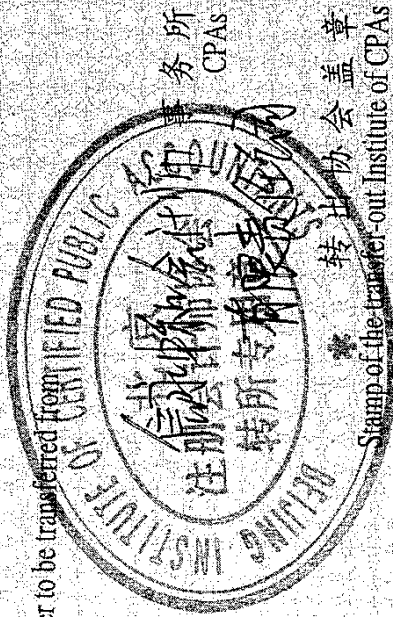 er to be transferred from
事务所
CPAs
BEIJING INSTITUTE OF CERTIFIED PUBLIC ACCOUNTANTS
注册会计师协会
转所专用章
转出协会盖章
Stamp of the transfer-out Institute of CPAs